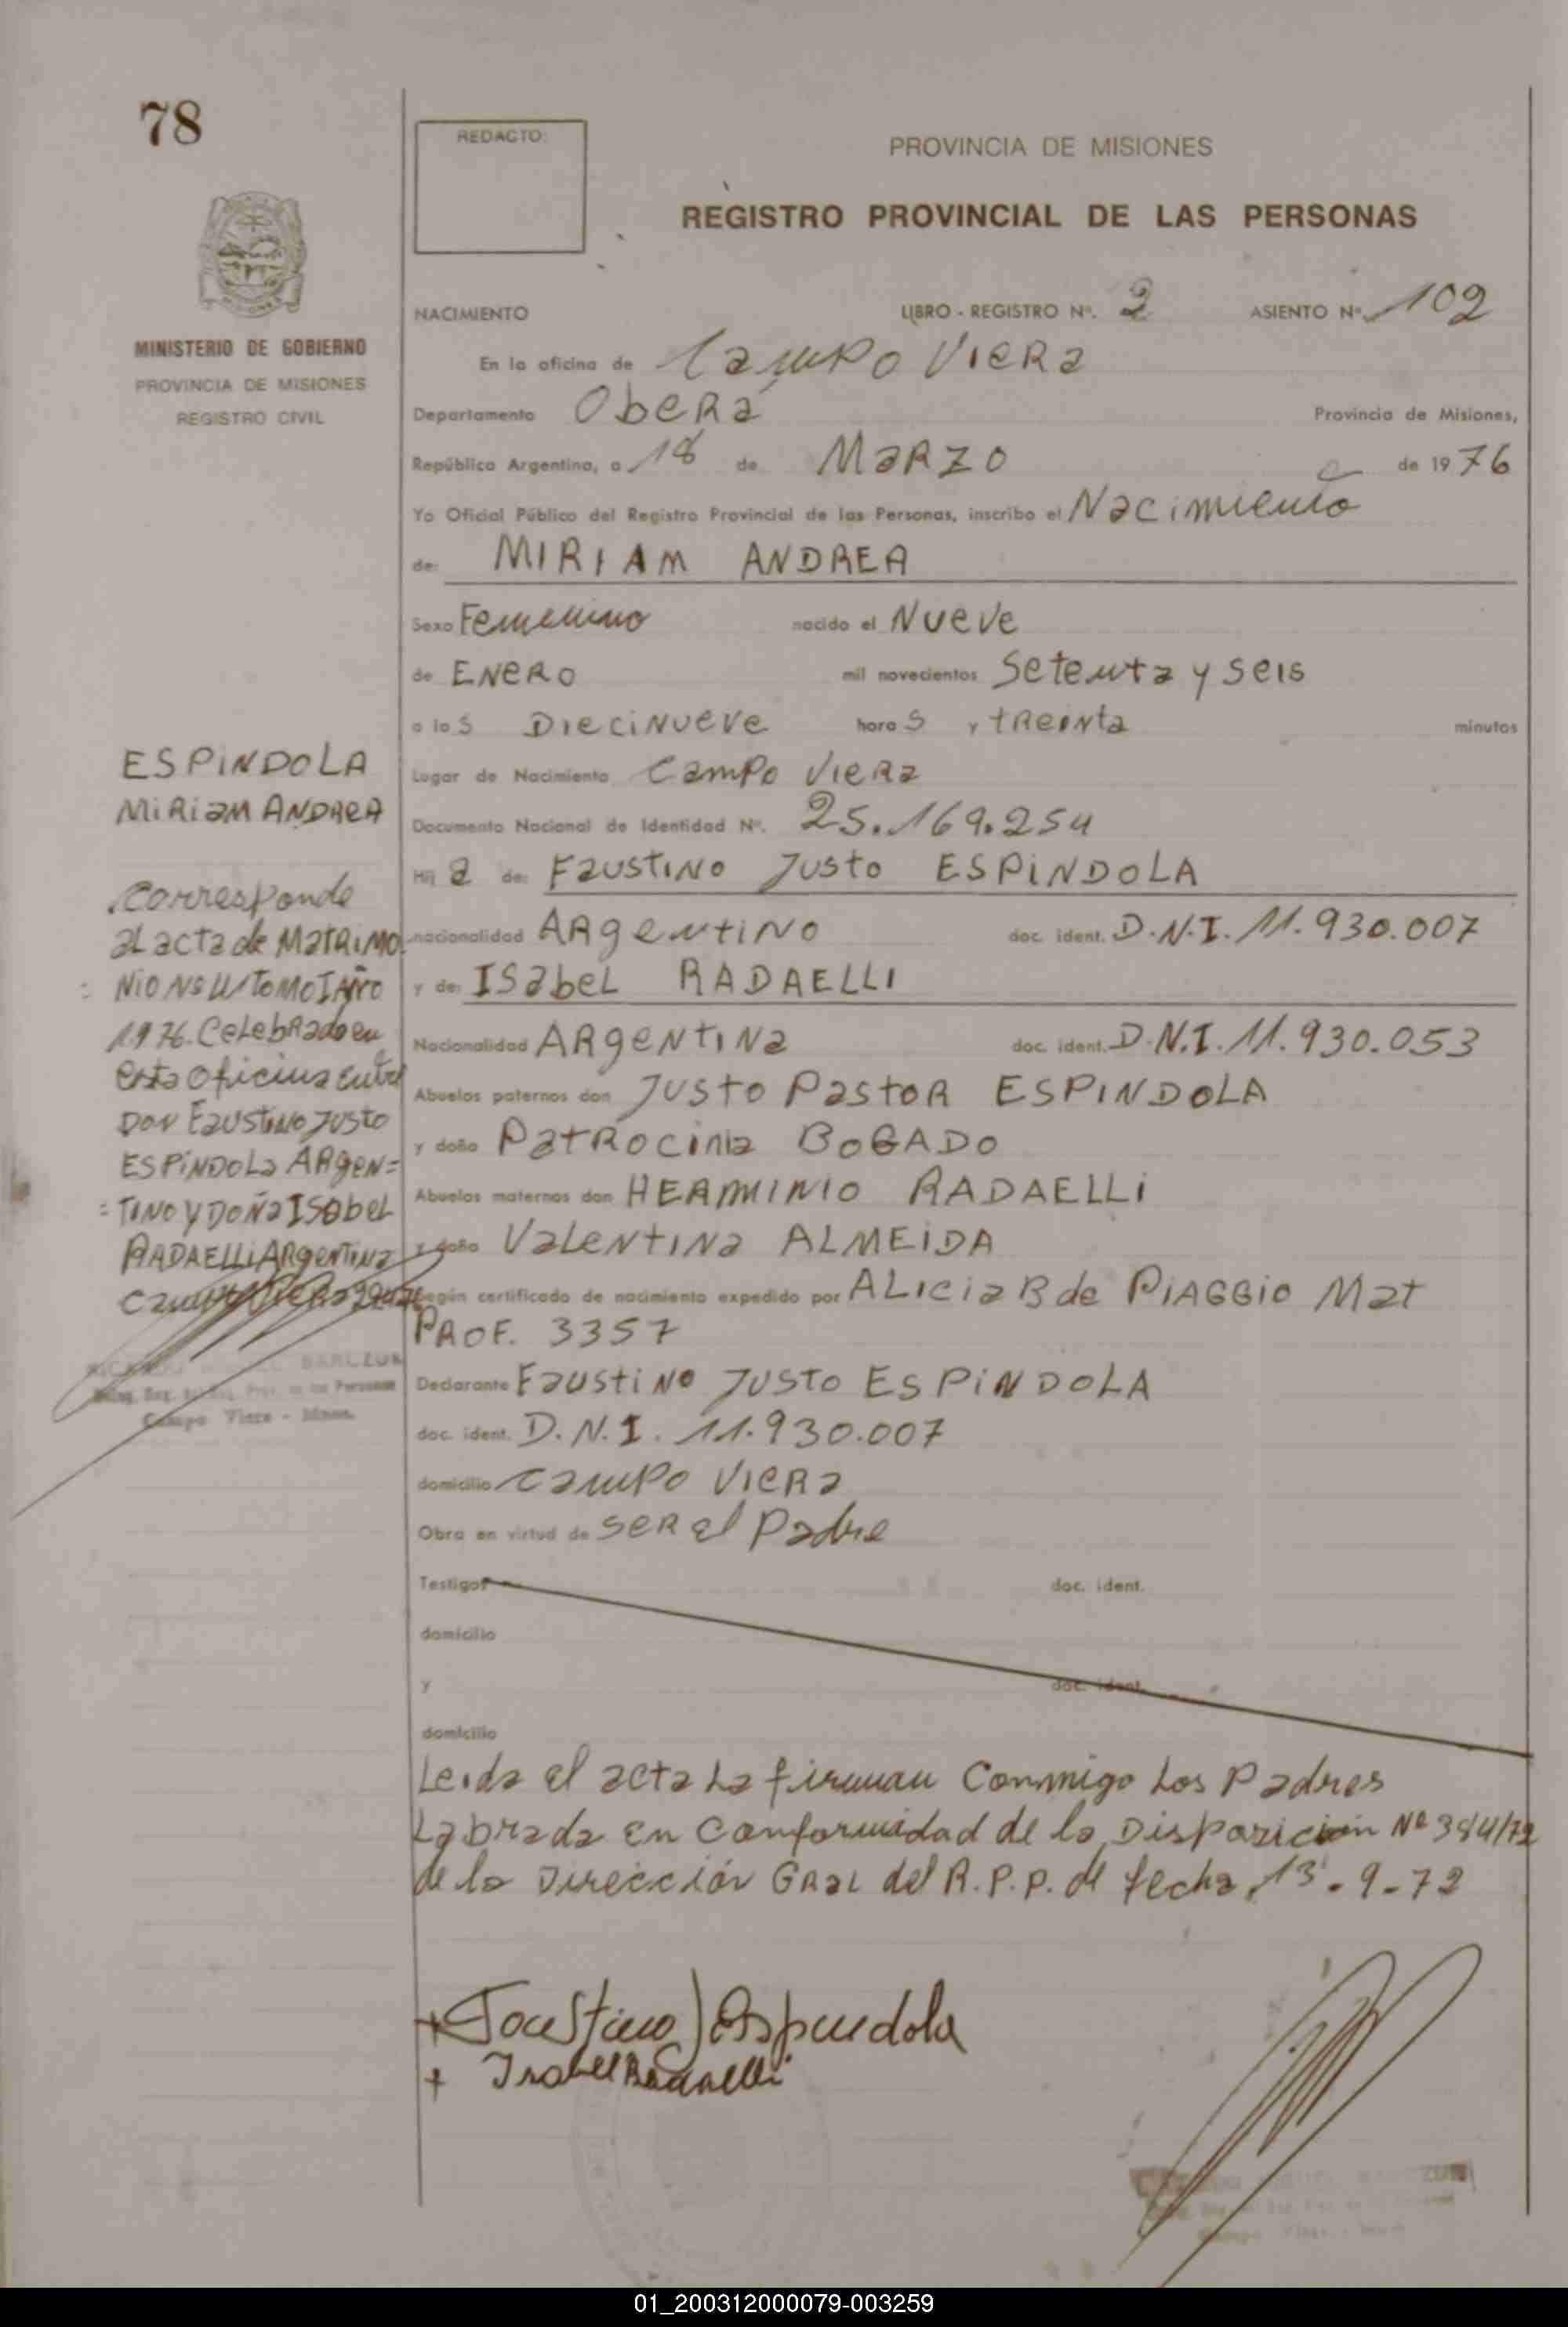 78
REDACTO:
PROVINCIA DE MISIONES
REGISTRO PROVINCIAL DE LAS PERSONAS
MINISTERIO DE GOBIERNO
PROVINCIA DE MISIONES
REGISTRO CIVIL
NACIMIENTO LIBRO - REGISTRO Nº. 2 ASIENTO Nº. 102
En la oficina de Campo Viera
Departamento Oberá Provincia de Misiones,
República Argentina, a 18 de Marzo de 1976
Yo Oficial Público del Registro Provincial de las Personas, inscribo el Nacimiento
de: MIRIAM ANDREA
Sexo Femenino nacido el Nueve
de ENERO mil novecientos Setenta y seis
a las Diecinueve horas y treinta minutos
Lugar de Nacimiento Campo Viera
Documento Nacional de Identidad Nº. 25.169.254
Hija de: Faustino Justo ESPINDOLA
nacionalidad Argentino doc. ident. D.N.I. 11.930.007
y de: Isabel RADAELLI
Nacionalidad Argentina doc. ident. D.N.I. 11.930.053
Abuelos paternos don Justo Pastor ESPINDOLA
y doña Patrocinia BOGADO
Abuelos maternos don HERMINIO RADAELLI
y doña Valentina ALMEIDA
Según certificado de nacimiento expedido por Alicia B de PIAGGIO Mat
PROF. 3357
Declarante Faustino Justo ESPINDOLA
doc. ident. D.N.I. 11.930.007
domicilio Campo Viera
Obra en virtud de ser el Padre
Testigos doc. ident.
domicilio
y doc. ident.
domicilio
Leida el acta la firman Conmigo los Padres
Labrada en Conformidad de la Disposición Nº 384/72
de la Dirección Gral del R.P.P. de fecha 13-9-72
ESPINDOLA
MIRIAM ANDREA
Corresponde
al acta de Matrimo
= nio Nº Tomo I Año
1976. Celebrado en
esta oficina entre
Don Faustino Justo
ESPINDOLA Argen=
=tino y Doña Isabel
RADAELLI Argentina
Campo Viera
MIGUEL BARCZUK
Campo Viera - Mnes.
+ Faustino J Espindola
+ Isabel Radaelli
01_200312000079-003259